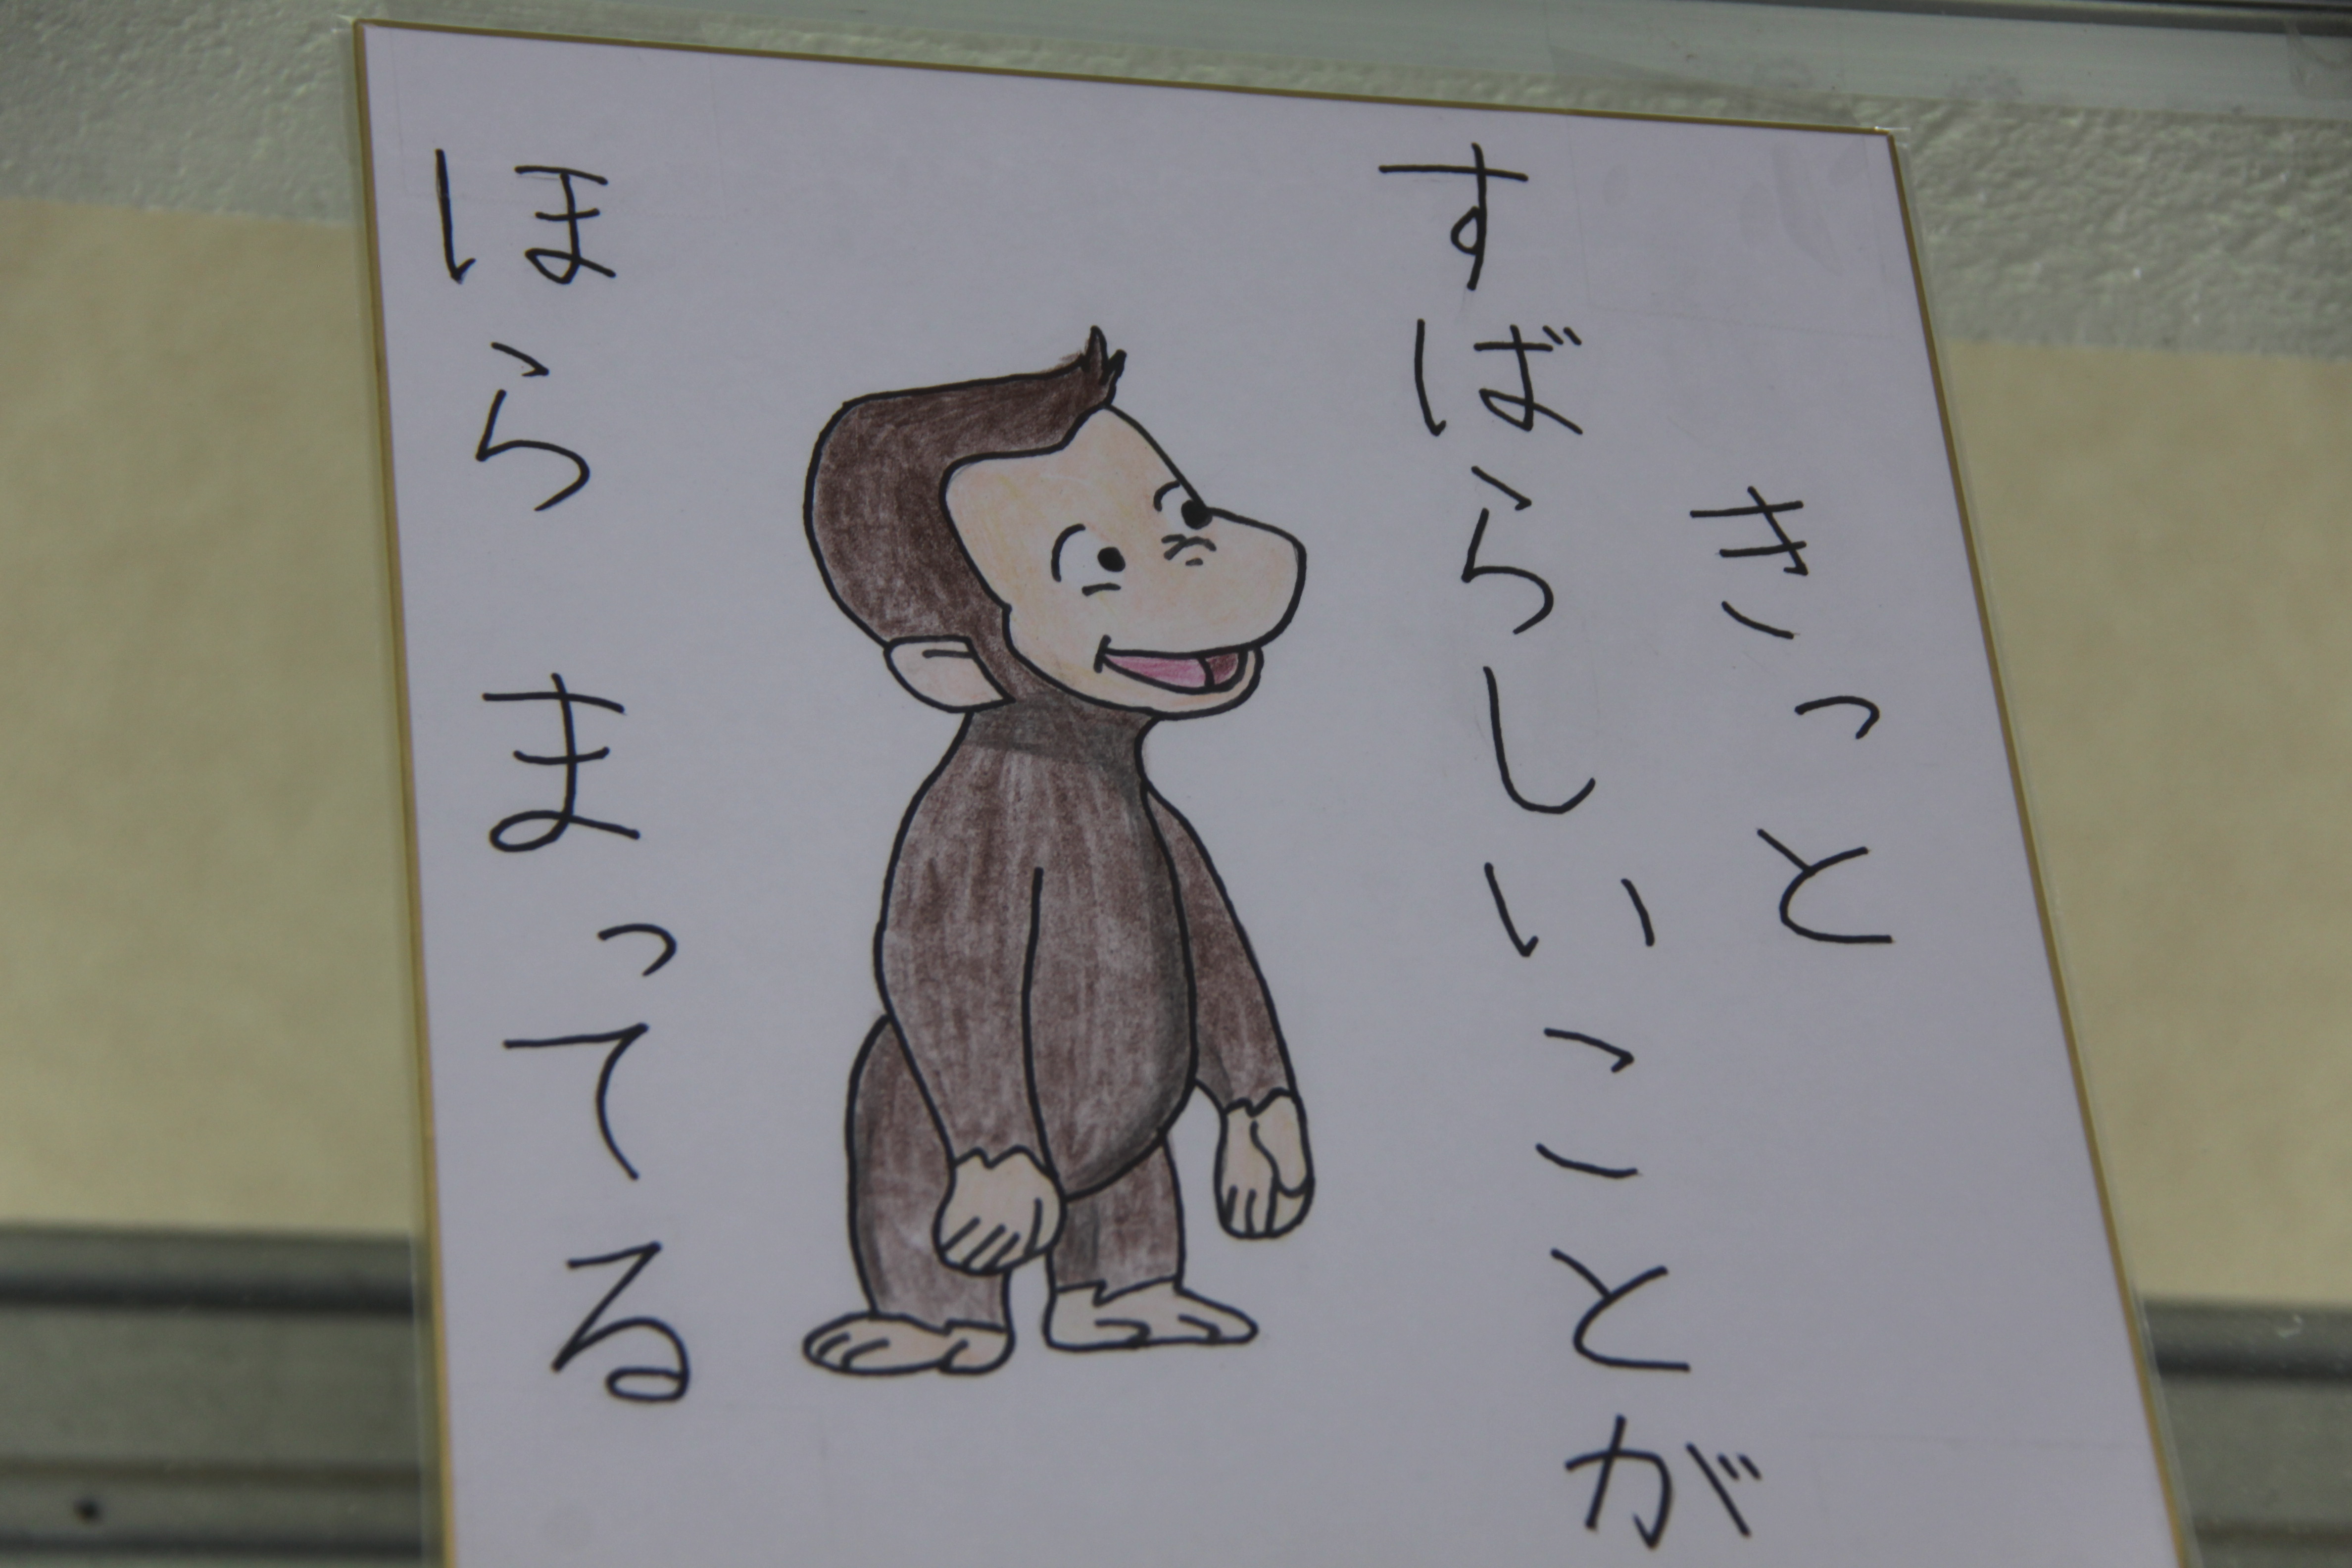 きっと
すばらしいことが
ほら まってる